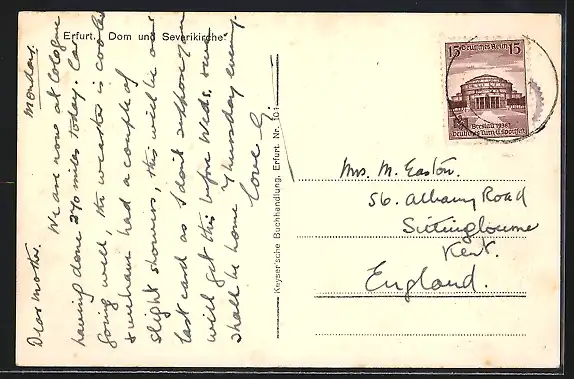 Erfurt. Dom und Severikirche
Monday.
Dear Mother.
We are now at Cologne
having done 270 miles today. Car
going well, the weather is cooler
& we have had a couple of
slight showers, this will be our
last card as I don't suppose you
will get this before Weds. and
shall be home Thursday evening.
Love G.
Keyser'sche Buchhandlung, Erfurt. Nr. 101
15 Deutsches Reich 15
Breslau 1938
Deutsches Turn- u. Sportfest
Mrs. M. Easton.
56. Albany Road
Sittingbourne
Kent.
England.